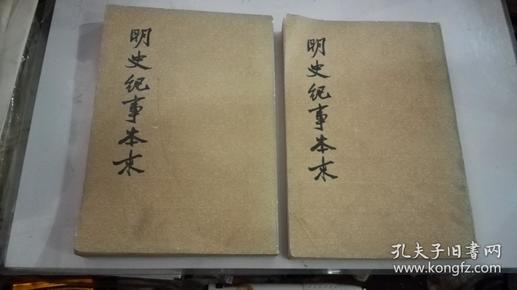 明史纪事本末
明史纪事本末
孔夫子旧书网
www.kongfz.com